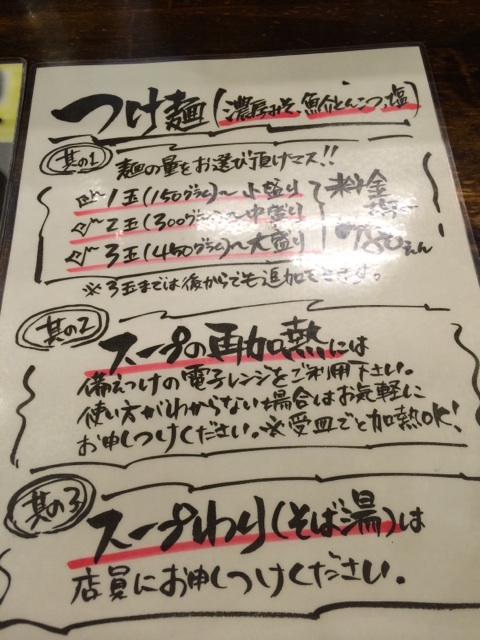 つけ麺(濃厚みそ、魚介とんこつ、塩)
其の1 麺の量をお選び頂けマス!!
1玉(150グラム)〜小盛り
2玉(300グラム)〜中盛り
3玉(450グラム)〜大盛り
料金
780えん
※3玉までは後からでも追加できます。
其の2 スープの再加熱には
備えつけの電子レンジをご利用下さい。
使い方がわからない場合はお気軽に
お申しつけください。※受皿ごと加熱OK!
其の3 スープわり(そば湯)は
店員にお申しつけください。